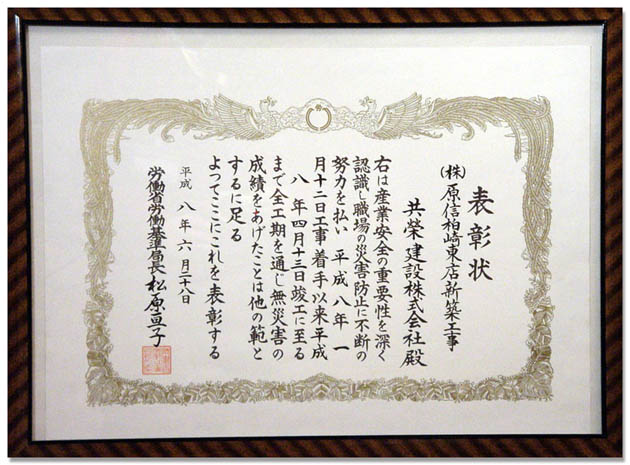 表彰状
(株)原信柏崎東店新築工事
共榮建設株式会社殿
右は産業安全の重要性を深く
認識し職場の災害防止に不断の
努力を払い 平成八年 一
月十二日工事着手以来平成
八年四月十三日竣工に至る
まで全工期を通じ無災害の
成績をあげたことは他の範と
するに足る
よってここにこれを表彰する
平成八年六月二十八日
労働省労働基準局長 松原亘子